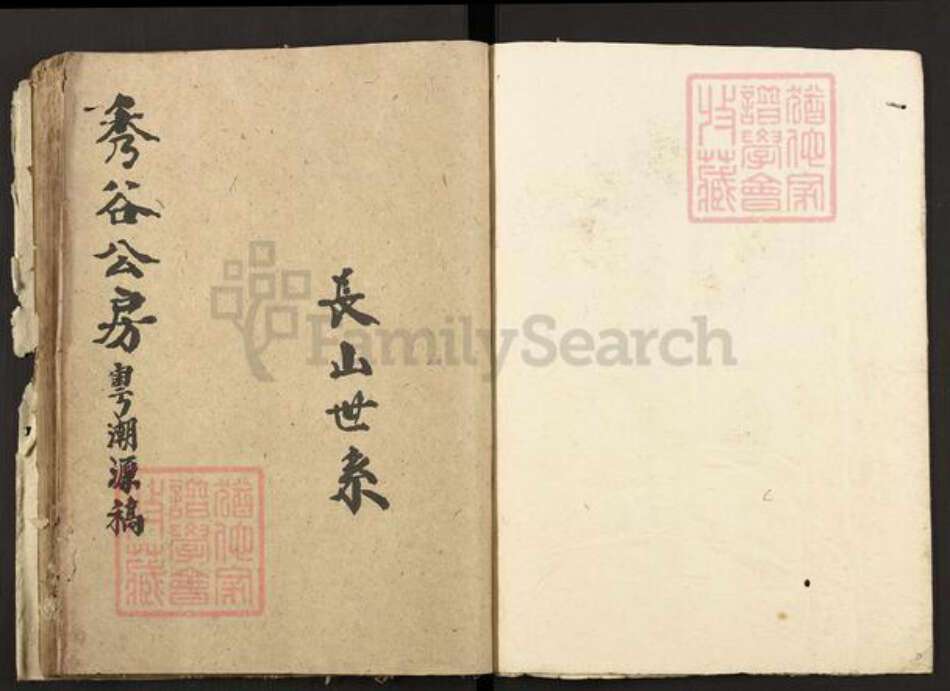 長山世系
秀谷公房粤潮源稿
FamilySearch
猶他家
譜學會
收藏
猶他家
譜學會
收藏